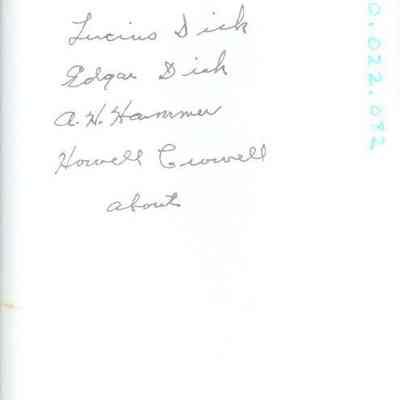 Lucius Dick
Edgar Dick
A. H. Hammer
Howell Crowell
about
0.022.072